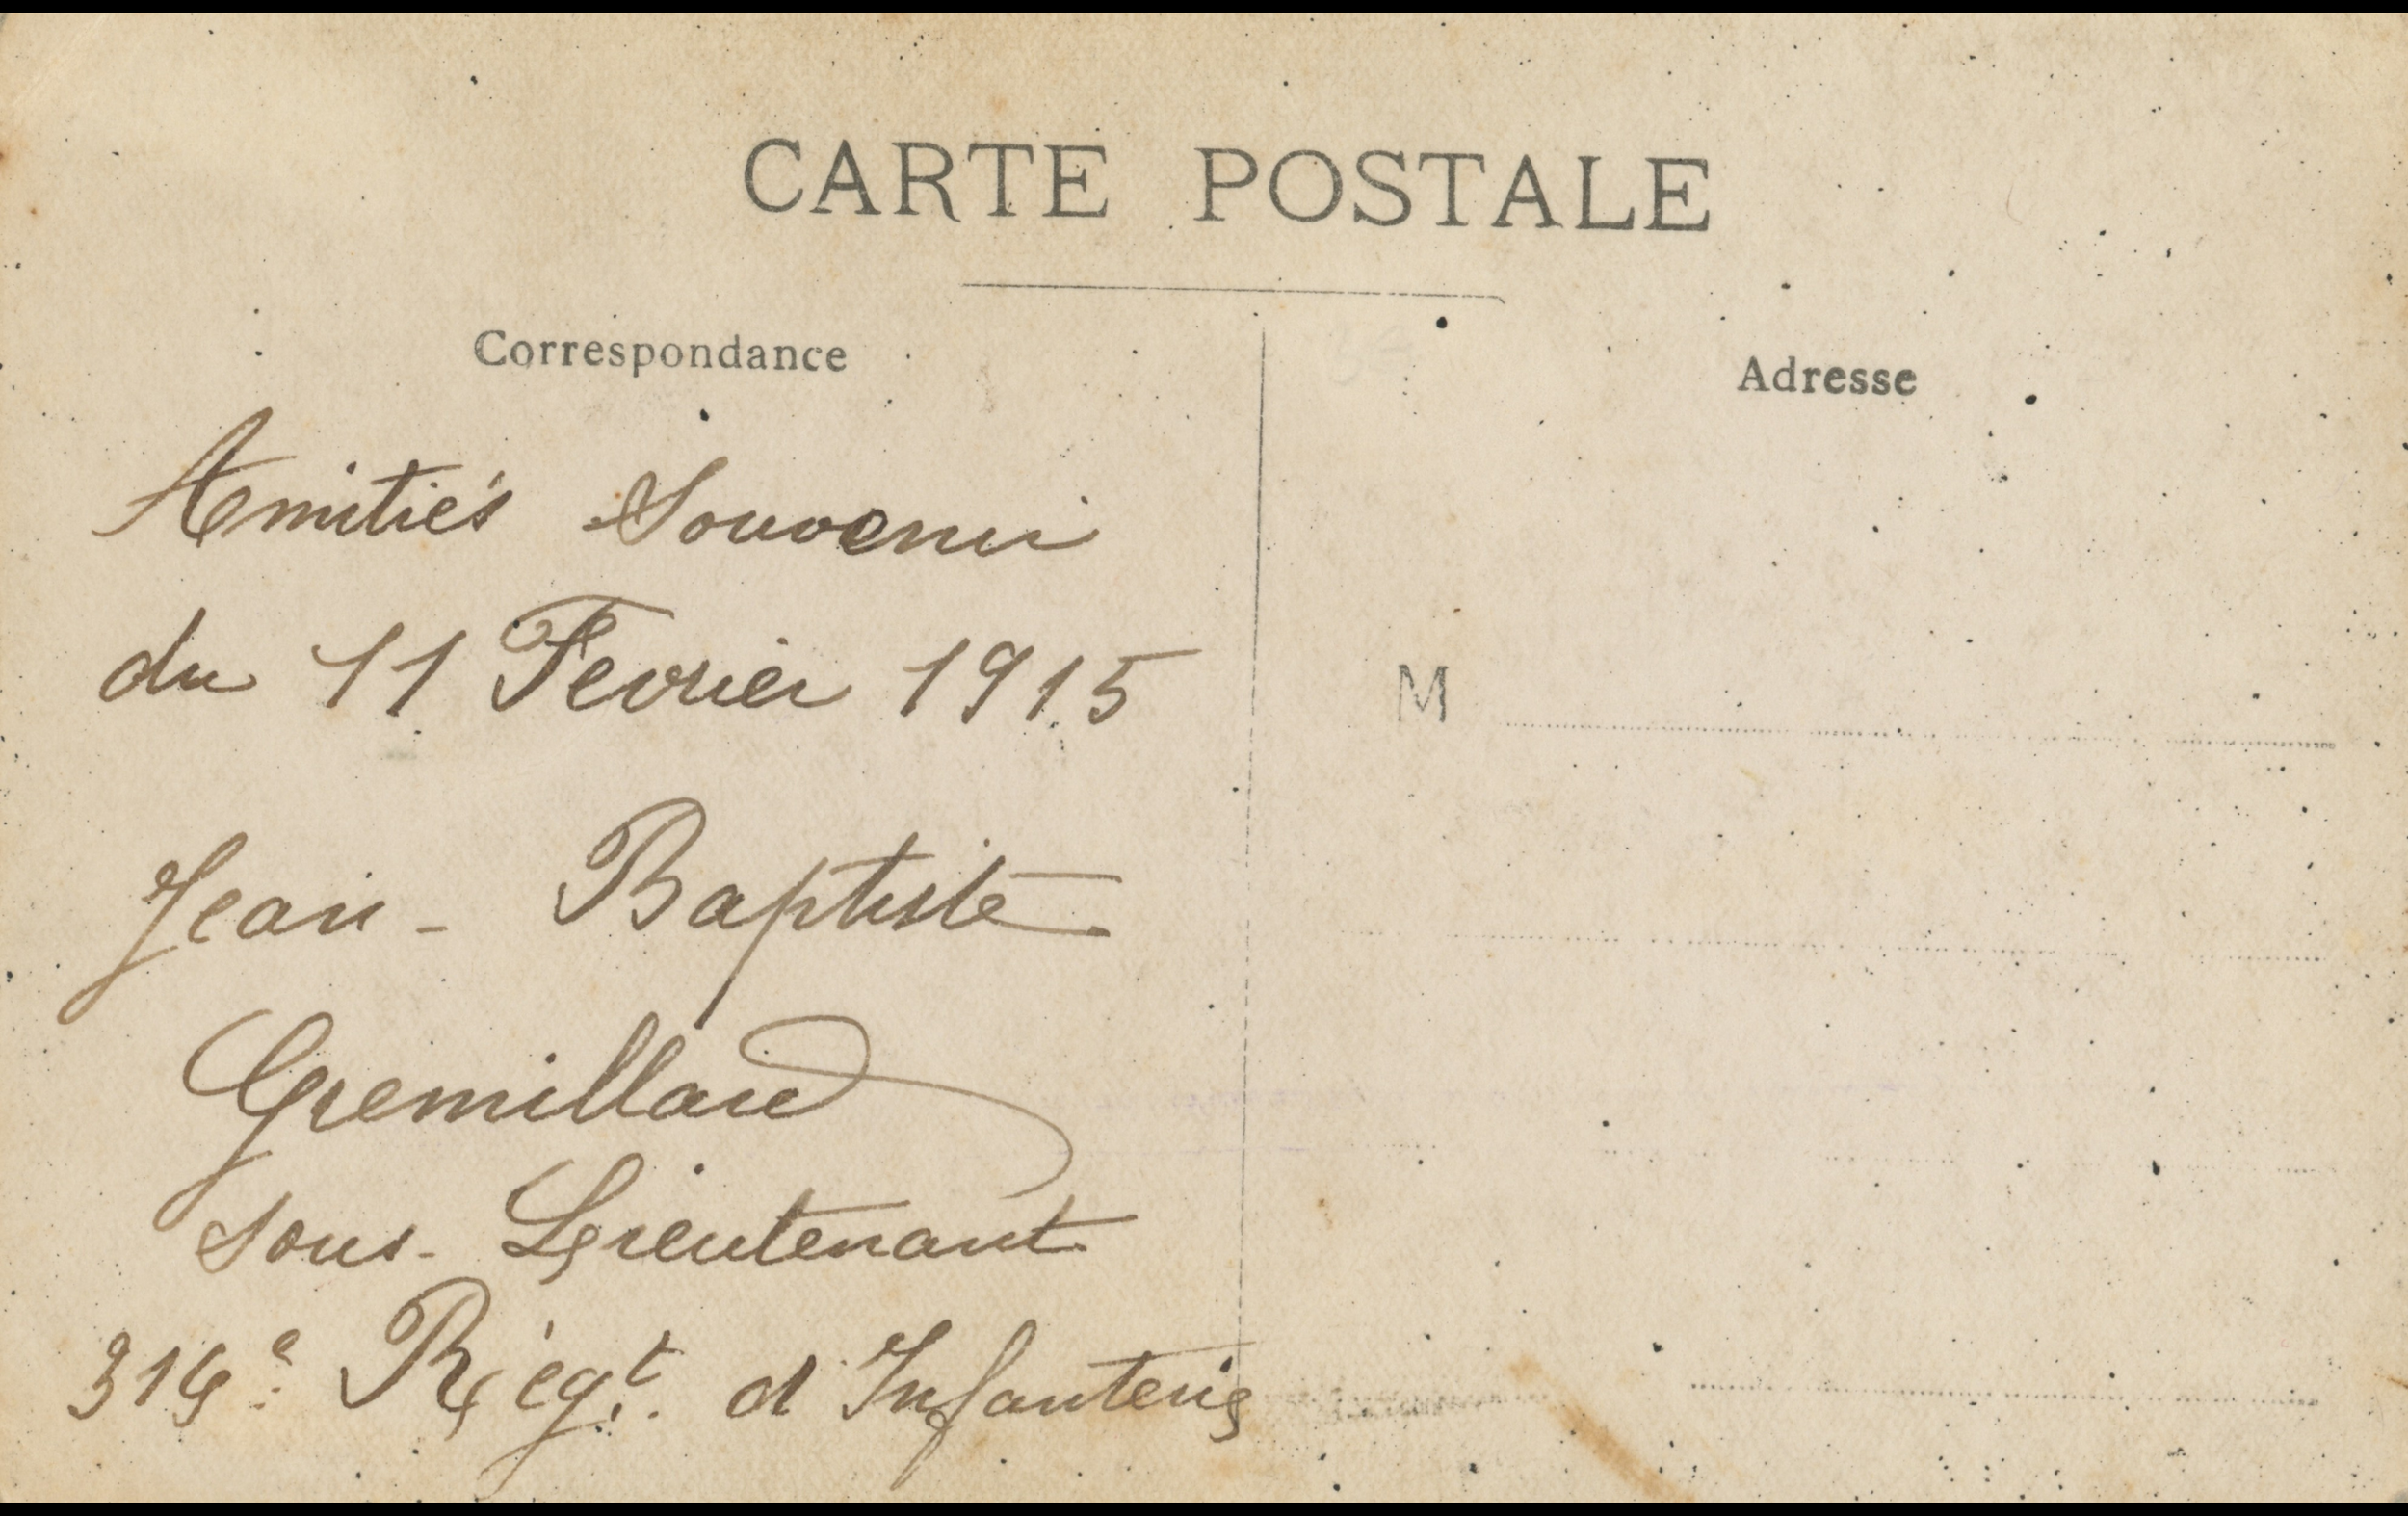 CARTE POSTALE
Correspondance
Adresse
Amitiés Souvenir
du 11 Fevrier 1915
M
Jean - Baptiste
Gremillard
sous - Lieutenant
Régt. d'Infanterie